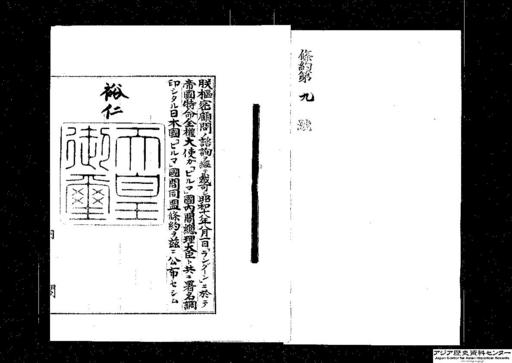 條約第九號
朕樞密顧問ノ諮詢ヲ經テ裁可シ昭和十八年八月一日「ラングーン」ニ於テ
帝國特命全權大使カ「ビルマ」國內閣總理大臣ト共ニ署名調
印シタル日本國「ビルマ」國間同盟條約ヲ茲ニ公布セシム
裕仁
天皇
御璽
アジア歴史資料センター
Japan Center for Asian Historical Records